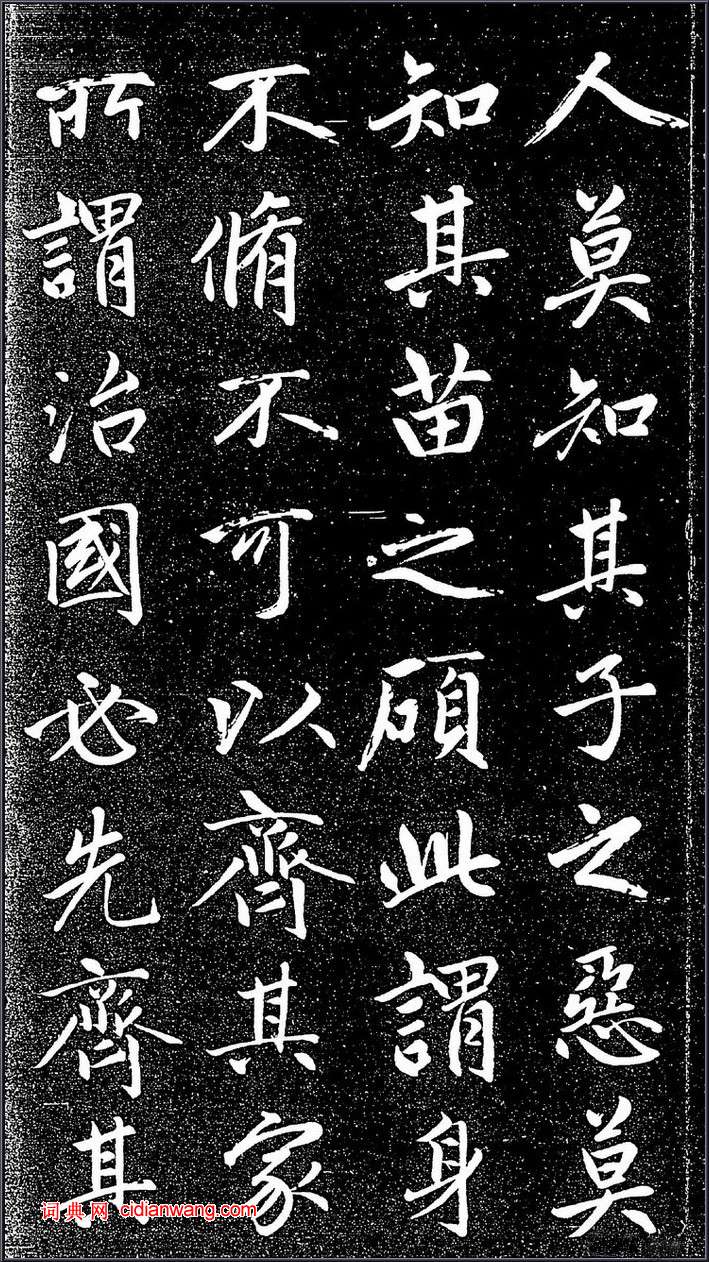 人莫知其子之惡莫
知其苗之碩此謂身
不脩不可以齊其家
所謂治國必先齊其
词典网 cidianwang.com